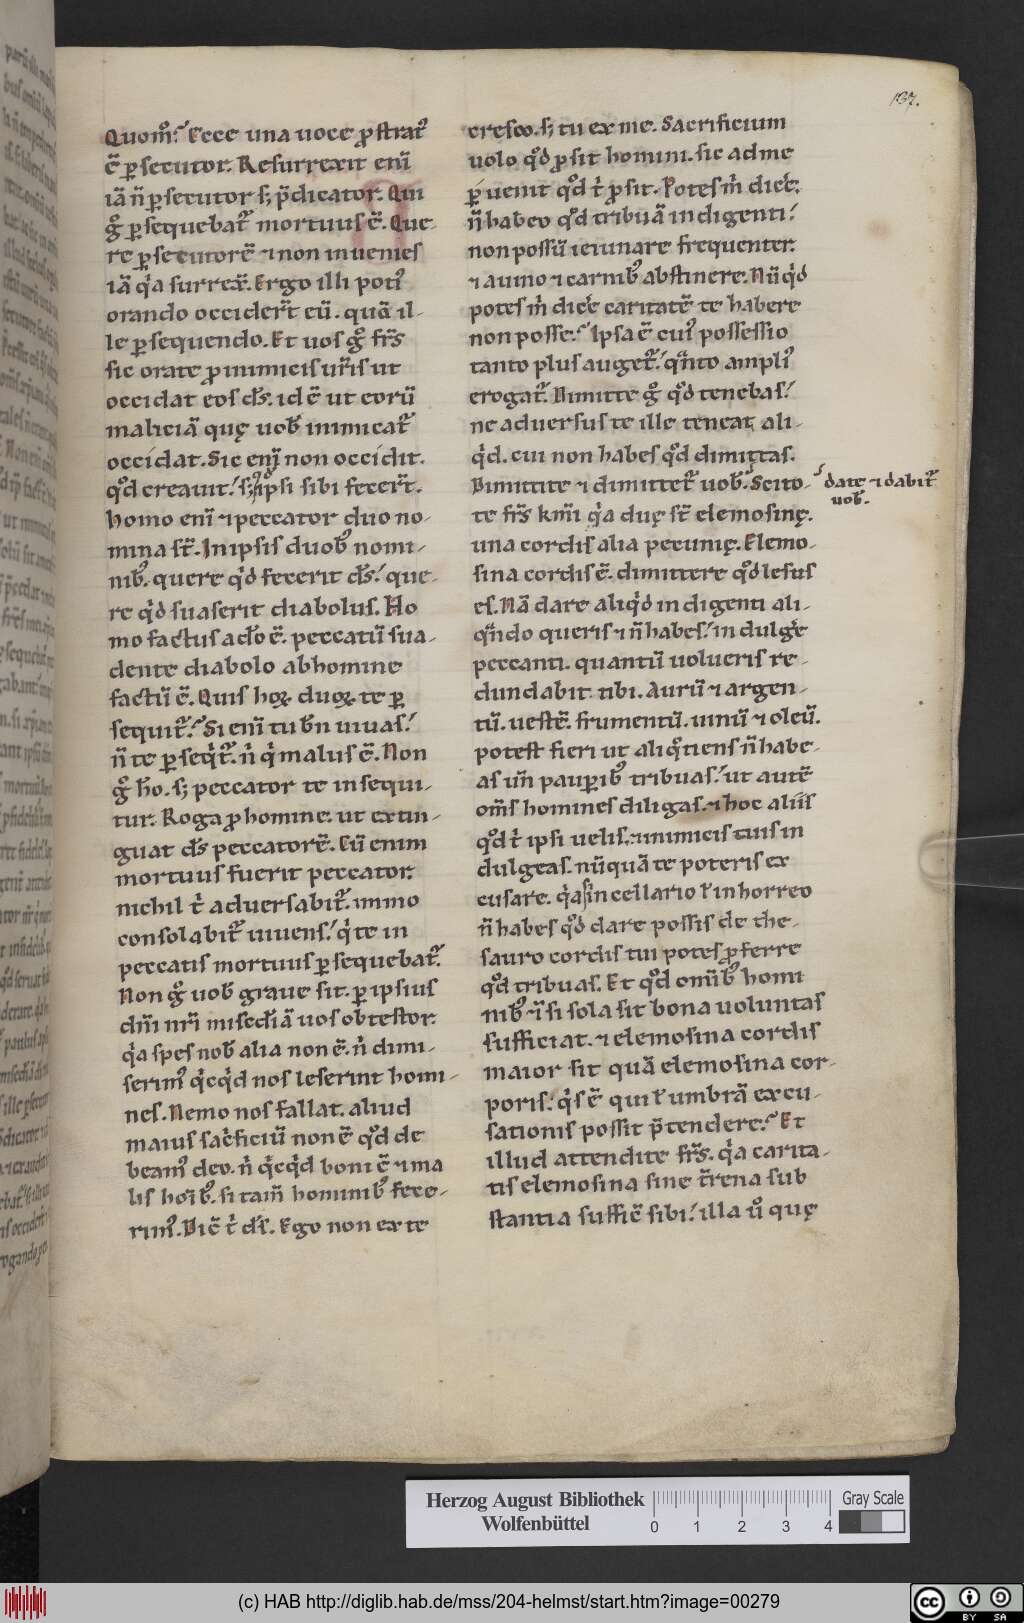 137.
Quom̊.ˀ Ecce una uoce ꝓstratˀ
ē ꝑsecutor. Resurrexit eni̅
iā n̄ ꝑsecutor sꝫ p̄dicator. Qui
gͦ ꝑsequebat᷑ mortuus ē. Que-
re ꝑsecutorē ⁊ non inuenies
iā qͥa surrex̄. Ergo illi potiˀ
orando occider̄t eū. quā il-
le ꝑsequendo. Et uos gͦ fr̄s
sic orate ꝓ inimicis ur̄is ut
occidat eos d̄s. id ē ut eorū
maliciā quę uob̄ inimicat᷑
occidat. Sic eni̅ non occidit.
qͦd creauit.ˊ sꝫ qͦd ip̄si sibi fecer̄t.
homo eni̅ ⁊ peccator duo no-
mina s̄t. In ipsis duobꝰ nomi-
nibꝰ. quere qͥd fecerit d̄s.ˊ que-
re qͥd suaserit diabolus. Ho
mo factus a d̄o ē. peccatū sua-
dente diabolo ab homine
factū ē. Quis hoꝝ duoꝝ te ꝑ
sequit᷑.ˀ Si eni̅ tu bn̄ uiuas.ˊ
n̄ te ꝑseqͥt᷑. n̓ qͥ malus ē. Non
gͦ h̄o. sꝫ peccator te insequi-
tur. Roga ꝓ homine. ut extin-
guat d̄s peccatorē. Cū enim
mortuus fuerit peccator.
nichil t̓ aduersabit᷑. immo
consolabit᷑ uiuens.ˊ qͥ te in
peccatis mortuus ꝑsequebat᷑.
Non gͦ uob̄ graue sit. ꝑ ipsius
dm̄i nr̄i mised̄iā uos obtestor.
qͥa spes nob̄ alia non ē. n̓ dimi-
serimꝰ qͥcqͥd nos leserint homi-
nes. Nemo nos fallat. aliud
maius sac̓ficiū non ē qͦd de
beamꝰ deo. n̓ qͥcqͥd boni ē ⁊ ma
lis hoi̅bꝰ. si tam̄ hominibꝰ fece-
rimꝰ. Dic̄ t̓ d̄s. Ego non ex te
cresco. sꝫ tu ex me. Sacrificium
uolo qͦd ꝓsit homini. sic ad me
ꝑuenit qͦd t̓ ꝓsit. Potes m̓ dic̓e.
n̄ habeo qͦd tribuā indigenti.ˊ
non possū ieiunare frequenter.
⁊ a uino ⁊ carnibꝰ abstinere. Nūqͥd
potes m̓ dic̓e caritatē te habere
non posse.ˀ Ipsa ē cuiꝰ possessio
tanto plus auget᷑.ˊ qᵃnto ampliꝰ
erogat᷑. Dimitte gͦ qͦd tenebas.ˊ
ne aduersus te ille teneat ali-
qͥd. cui non habes qͦd dimittas.
Dimittite ⁊ dimittet᷑ uob̄. Scito-
ˊdate ⁊ dabit᷑
uob̄.
te fr̄s km̄i qͥa duę s̄t elemosinę.
una cordis alia pecunię. Elemo-
sina cordis ē. dimittere qͦd lesus
es. Nā dare aliqͥd indigenti ali-
qᵃndo queris ⁊ n̄ habes.ˊ indulg̓e
peccanti. quantū uolueris re-
dundabit tibi. Aurū ⁊ argen-
tū. uestē. frumentū. uinū ⁊ oleū.
potest fieri ut aliqͦtiens n̄ habe-
as un̄ pauꝑibꝰ tribuas.ˊ ut autē
om̄s homines diligas. ⁊ hoc aliis
qͦd t̓ ipsi uelis. ⁊ inimicis tuis in
dulgeas. nūquā te poteris ex
cusare. qͥa si in cellario ł in horreo
n̄ habes qͦd dare possis de the-
sauro cordis tui potes ꝓferre
qͦd tribuas. Et qͦd om̄ibꝰ homi
nibꝰ t̓ si sola sit bona uoluntas
sufficiat. ⁊ elemosina cordis
maior sit quā elemosina cor-
poris.ˊ qͥs ē qui ł umbrā excu-
sationis possit p̄tendere.ˀ Et
illud attendite fr̄s. qͥa carita-
tis elemosina sine t̄rena sub
stantia suffic̄ sibi.ˊ illa ůo quę
Herzog August Bibliothek
Wolfenbüttel
0 1 2 3 4
Gray Scale
(c) HAB http://diglib.hab.de/mss/204-helmst/start.htm?image=00279
cc BY SA